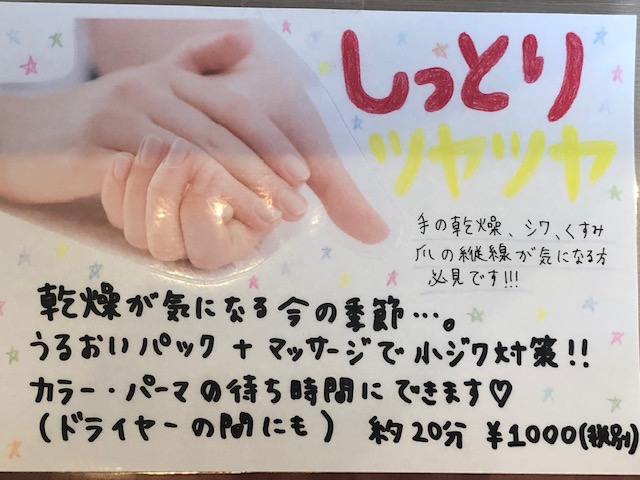 しっとり
ツヤツヤ
手の乾燥、シワ、くすみ
爪の縦線が気になる方
必見です!!!
乾燥が気になる今の季節…。
うるおいパック+マッサージで小ジワ対策!!
カラー・パーマの待ち時間にできます♡
(ドライヤーの間にも) 約20分 ¥1000(税別)